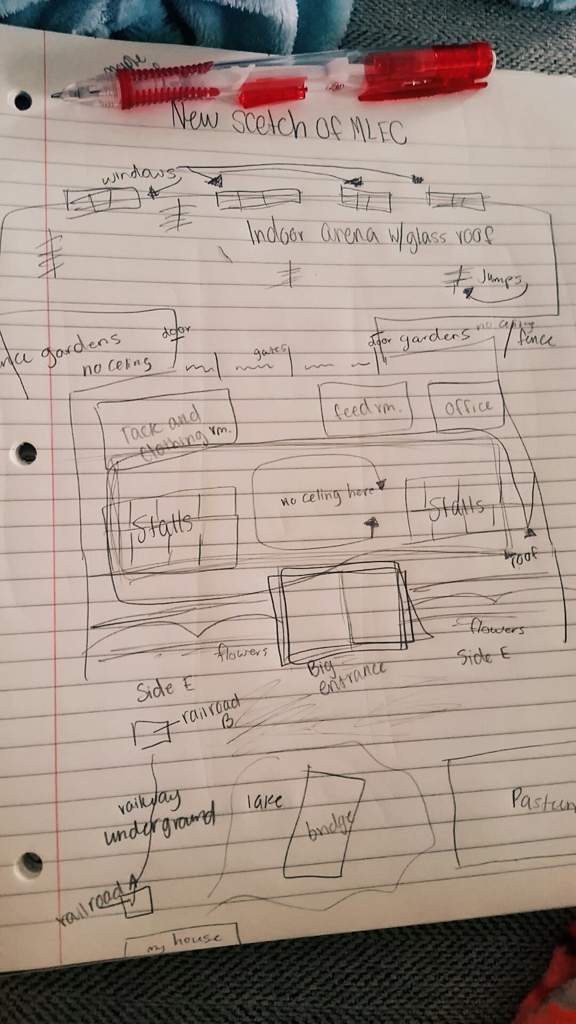 New Scetch of MLFC
windows
Indoor arena w/glass roof
Jumps
door
gardens
no celing
gates
door
gardens
fence
Tack and
clothing rm.
feed rm.
office
Stalls
no celing here
Stalls
roof
flowers
Big
entrance
flowers
Side E
Side E
railroad
B
railway
underground
lake
bridge
railroad A
my house